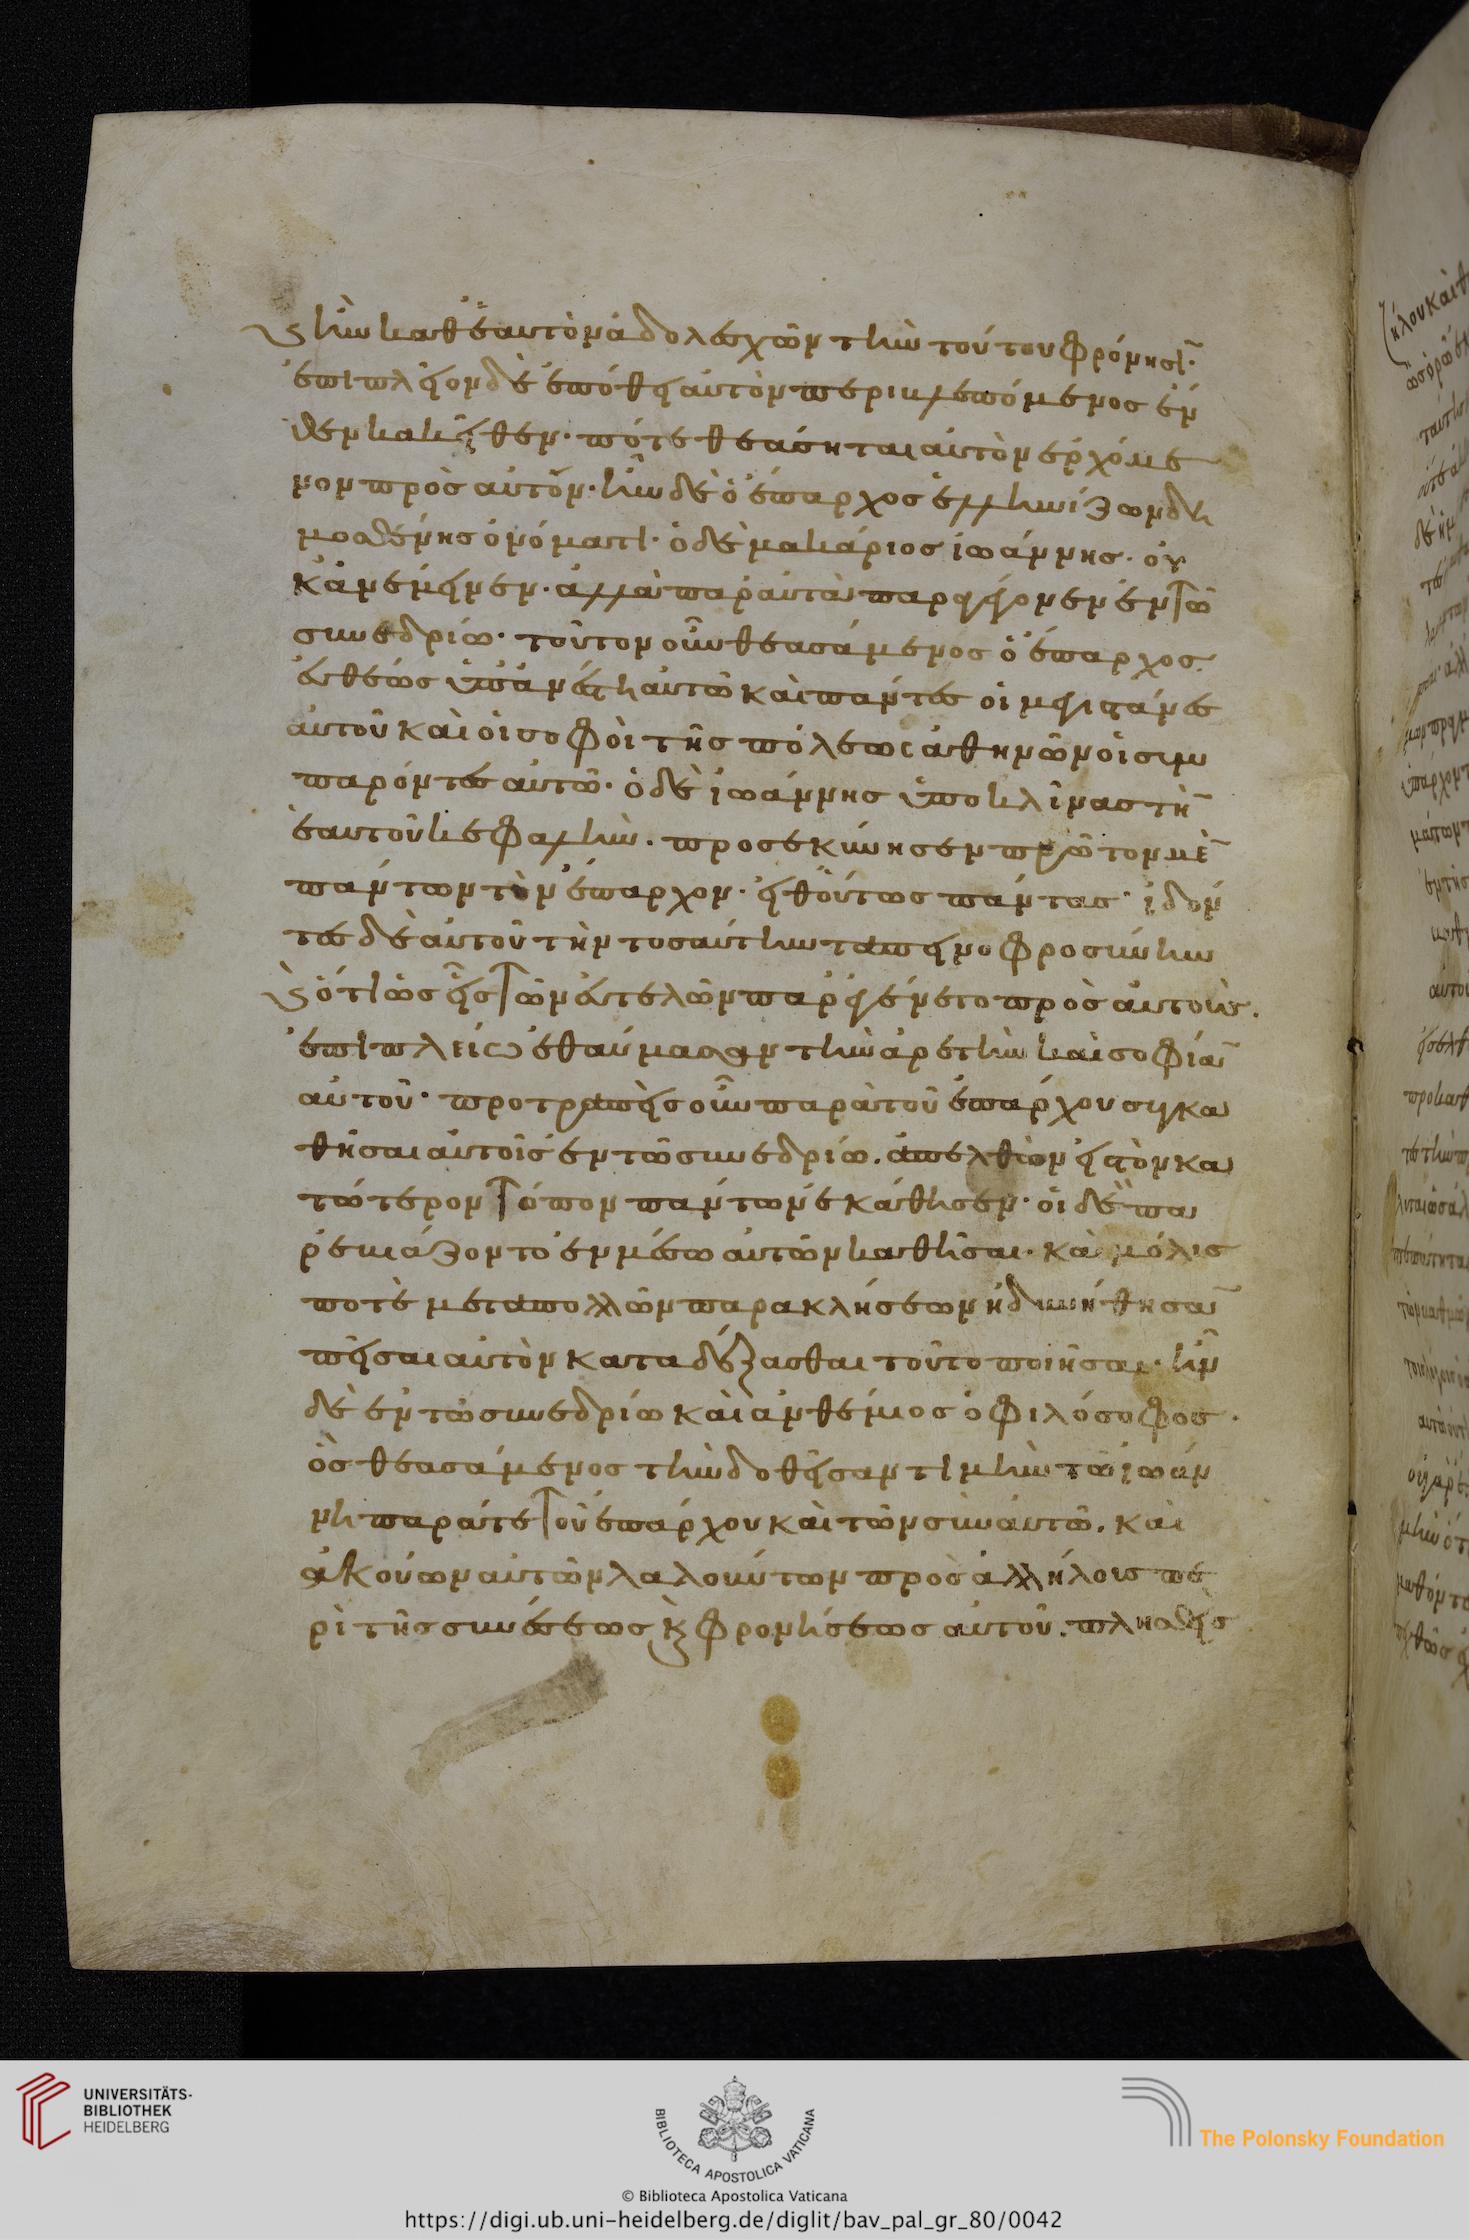 ἦν καθ' ἑαυτὸν ἀδολεσχῶν τὴν τούτου φρόνησιν.
ἐπιπλεῖον δὲ ἐπόθει αὐτὸν περιβλεπόμενος ἔν
θεν κακεῖθεν· πότε θεάσηται αὐτὸν ἐρχόμε
νον πρὸς αὐτόν· ἦν δὲ ὁ ἔπαρχος ἑλληνίζων δη
μοσθένης ὀνόματι· ὁ δὲ μακάριος ἰωάννης· οὐ
κ ἀνέμεινεν· ἀλλὰ παραυτὰ παρεγένονεν ἐν τῶ
συνεδρίω· τοῦτον οὖν θεασάμενος ὁ ἔπαρχος
εὐθέως ὑπανέστη αὐτῶ καὶ παντες οἱ μεγιστάνες
αὐτοῦ καὶ οἱ σοφοὶ τῆς πόλεως ἀθηνῶν οἱ συμ
παρόντες αὐτῶ· ὁ δὲ ἰωάννης ὑποκλίνας τὴν
ἑαυτοῦ κεφαλὴν· προσεκύνησεν πρῶτον μὲν
πάντων τὸν ἔπαρχον· εἶθ' οὕτως πάντας· ἰδόν
τες δὲ αὐτοῦ τὴν τοσαύτην ταπεινοφροσύνην
ὅτι ὡς εἷς τῶν εὐτελῶν παρεγένετο πρὸς αὐτοὺς.
ἐπιπλείω ἐθαύμασαν τὴν ἀρετὴν καὶ σοφίαν
αὐτοῦ· προτραπεὶς οὖν παρὰ τοῦ ἐπάρχου συγκα
θῆσαι αὐτοῖς ἐν τῶ συνεδρίω. ἀπελθὼν εἰς τὸν κα
τώτερον τόπον παντων ἐκάθισεν· οἱ δὲ πα
ρεβιάζοντο ἐν μέσω αὐτῶν καθῆσαι· καὶ μόλις
ποτὲ μετα πολλῶν παρακλήσεων ἠδυνήθησαν
πεῖσαι αὐτὸν καταδέξασθαι τοῦτο ποιῆσαι· ἦν
δὲ ἐν τῶ συνεδρίω καὶ ἀνθέμιος ὁ φιλόσοφος.
ὃς θεασάμενος τὴν δοθεῖσαν τιμὴν τῶ ἰωάν
νη παρά τε τοῦ ἐπάρχου καὶ τῶν σὺν αὐτῶ. καὶ
ἀκούων αὐτῶν λαλούντων πρὸς ἀλλήλους πε
ρὶ τῆς συνέσεως κ φρονήσεως αὐτοῦ. πλησθεὶς
UNIVERSITÄTS-
BIBLIOTHEK
HEIDELBERG
BIBLIOTECA APOSTOLICA VATICANA
The Polonsky Foundation
© Biblioteca Apostolica Vaticana
https://digi.ub.uni-heidelberg.de/diglit/bav_pal_gr_80/0042